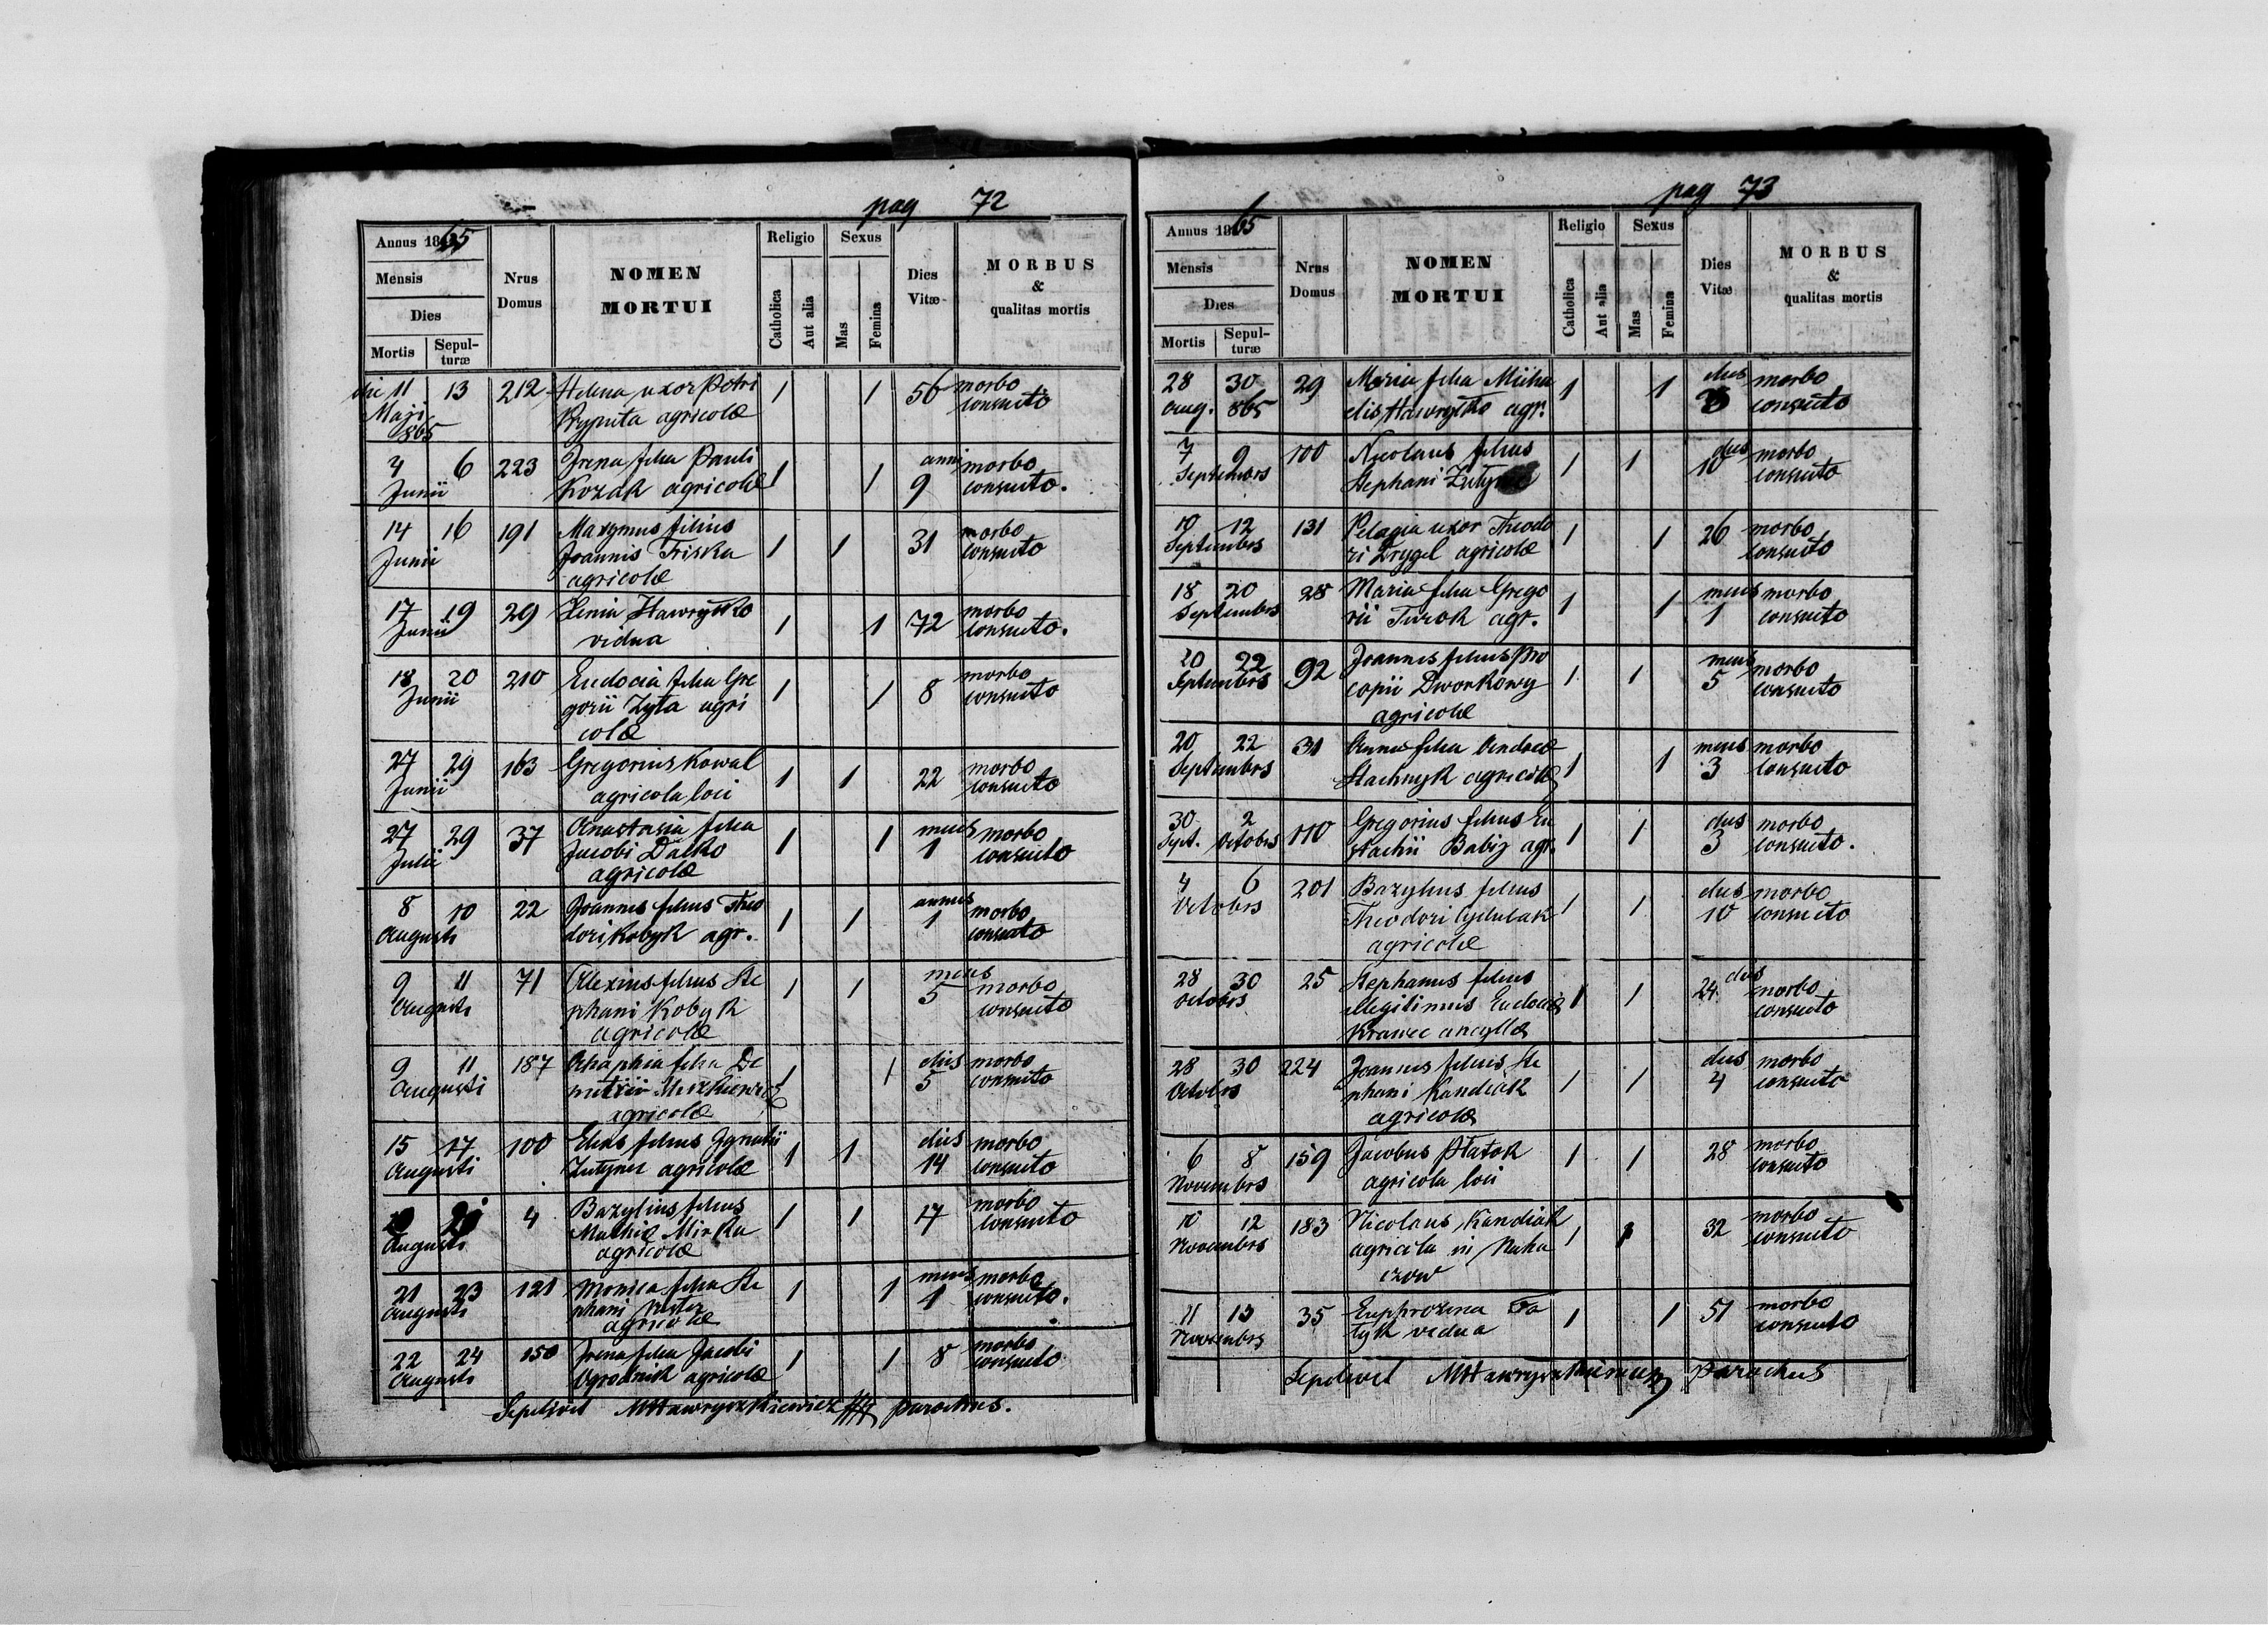 pag 72
Annus 1865
Mensis
Dies
Mortis
Sepul-
turæ
Nrus
Domus
NOMEN
MORTUI
Religio
Catholica
Aut alia
Sexus
Mas
Femina
Dies
Vitæ
MORBUS
&
qualitas mortis
die 11 13 212 Helena uxor Petri 1 1 56 morbo
Maji agricolæ consueto
865
4 6 223 Irena filia Pauli 1 1 anni morbo
Junii Kozak agricolæ 9 consueto.
14 16 191 Maxymus filius 1 1 31 morbo
Junii Joannis Triska consueto
agricolæ
17 19 29 Xenia Hawryłko 1 1 72 morbo
Junii vidua consueto.
18 20 210 Eudocia filia Gre 1 1 8 morbo
Junii gorii Zyła agri consueto
colæ
27 29 163 Gregorius Kowal 1 1 22 morbo
Junii agricola loci consueto
27 29 37 Anastasia filia 1 1 mens morbo
Julii Jacobi Dalko 1 consueto
agricolæ
8 10 22 Joannes filius Theo 1 1 annus morbo
Augusti dori Kobyk agr. 1 consueto
9 11 71 Alexius filius Ste 1 1 mens morbo
Augusti phani Kobyk 5 consueto
agricolæ
9 11 187 Ahaphia filia De 1 1 dies morbo
Augusti metrii 5 consueto
agricolæ
15 17 100 Elias filius Ignatii 1 1 dies morbo
Augusti agricolæ 14 consueto
4 Bazylius filius 1 1 17 morbo
Augusti Mathiæ Mirka consueto
agricolæ
21 23 121 Monica filia Ste 1 1 mens morbo
Augusti phani 1 consueto.
agricolæ
22 24 150 Irena filia Jacobi 1 1 8 morbo
Augusti Ogrodnik agricolæ consueto
Sepelivit MHawryszkiewicz parochus.
pag 73
Annus 1865
Mensis
Dies
Mortis
Sepul-
turæ
Nrus
Domus
NOMEN
MORTUI
Religio
Catholica
Aut alia
Sexus
Mas
Femina
Dies
Vitæ
MORBUS
&
qualitas mortis
28 30 29 Maria filia Micha 1 1 dies morbo
Aug. 865 elis Hawryłko agr. consueto
7 9 100 Nicolaus filius 1 1 dies morbo
Septembris Stephani 10 consueto
10 12 131 Pelagia uxor Theodo 1 1 26 morbo
Septembris ri Drygel agricolæ consueto
18 20 28 Maria filia Grego 1 1 mens morbo
Septembris rii Turok agr. 1 consueto
20 22 92 Joannes filius Pro 1 1 mens morbo
Septembris copii Dworkowy 5 consueto
agricolæ
20 22 31 Anna filia Andreæ 1 1 mens morbo
Septembris Stachnyk agricolæ 3 consueto
30 2 110 Gregorius filius Eu 1 1 dies morbo
Sept. Octobris stachii Babij agr. 3 consueto.
4 6 201 Bazylius filius 1 1 dies morbo
Octobris Theodori 10 consueto
agricolæ
28 30 25 Stephanus filius 1 1 24 dies morbo
Octobris illegitimus Eudociæ consueto
Krawec ancyllæ
28 30 224 Joannes filius Ste 1 1 dies morbo
Octobris phani Kandiak 4 consueto
agricolæ
6 8 159 Jacobus Płatok 1 1 28 morbo
Novembris agricola loci consueto
10 12 183 Nicolaus Kandiak 1 1 32 morbo
Novembris agricola in Naha consueto
czow
11 13 35 Euphrozina Fa 1 1 51 morbo
Novembris tyk vidua consueto
Sepelivit MHawryszkiewicz Parochus